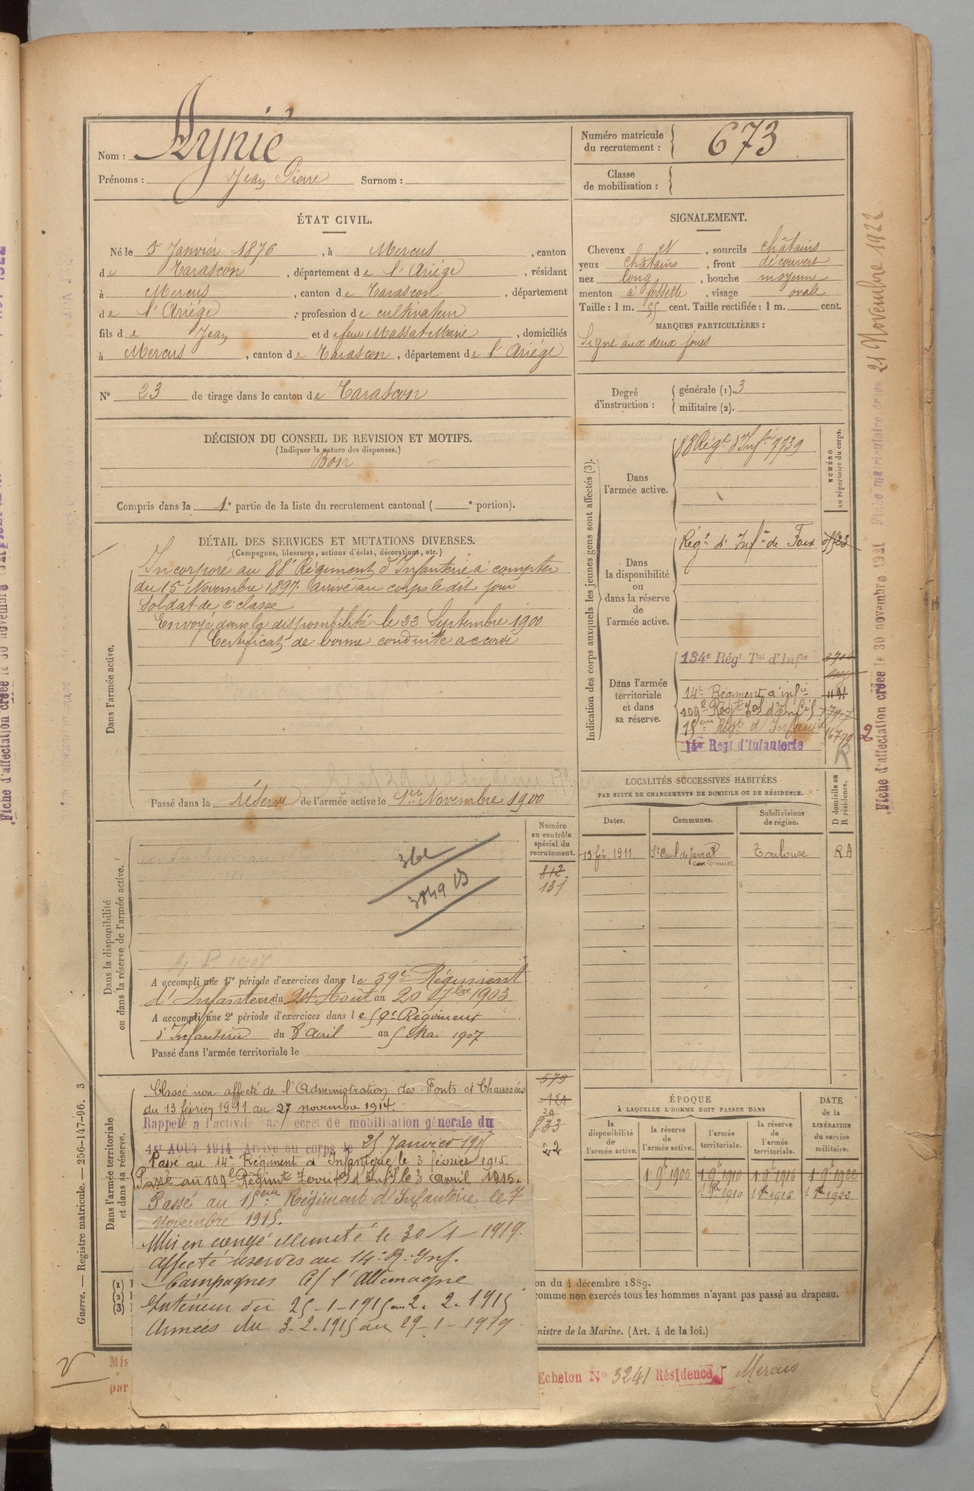 Nom : Aynié
Prénoms : Jean Pierre Surnom :
Numéro matricule du recrutement : 673
Classe de mobilisation :
ÉTAT CIVIL.
Né le 5 Janvier 1876, à Mercus, canton
de Tarascon, département de l'Ariège, résidant
à Mercus, canton de Tarascon, département
de l'Ariège, profession de cultivateur
fils de Jean et de feue Massat Marie, domiciliés
à Mercus, canton de Tarascon, département de l'Ariège
N° 23 de tirage dans le canton de Tarascon
SIGNALEMENT.
Cheveux et, sourcils châtains
yeux châtains, front découvert
nez long, bouche moyenne
menton à fossette, visage ovale
Taille : 1 m. 55 cent. Taille rectifiée : 1 m. cent.
MARQUES PARTICULIÈRES :
Signe aux deux joues
Degré d'instruction : générale (1). 3
militaire (2).
DÉCISION DU CONSEIL DE REVISION ET MOTIFS.
(Indiquer la nature des dispenses.)
Bon
Compris dans la 1e partie de la liste du recrutement cantonal ( e portion).
DÉTAIL DES SERVICES ET MUTATIONS DIVERSES.
(Campagnes, blessures, actions d'éclat, décorations, etc.)
Dans l'armée active.
Incorporé au 88e Régiment d'Infanterie à compter
du 15 Novembre 1897 arrivé au corps le dit jour
Soldat de 2e classe
Envoyé dans la disponibilité le 22 Septembre 1900
Certificat de bonne conduite accordé
Passé dans la réserve de l'armée active le 1er Novembre 1900
Indication des corps auxquels les jeunes gens sont affectés (3).
NUMÉRO au répertoire du corps.
Dans l'armée active.
88 Régt d'Inftie 7739
Dans la disponibilité ou dans la réserve de l'armée active.
Régt d'Inftie de Foix
Dans l'armée territoriale et dans sa réserve.
134e Régt Tal d'Infie
14e Régiment d'infie
109e Régt Tal d'Infie
15eme Régt d'Infant
14me Régt d'Infanterie
R
LOCALITÉS SUCCESSIVES HABITÉES
PAR SUITE DE CHANGEMENTS DE DOMICILE OU DE RÉSIDENCE.
Dates. Communes. Subdivisions de région. D domicile ou R résidence.
13 fév. 1911 St Paul de Jarrat Toulouse RA
Dans la disponibilité ou dans la réserve de l'armée active.
Numéro au contrôle spécial du recrutement.
A accompli une 1re période d'exercices dans le 59e Régiment
d'Infanterie du 24 Août au 20 7bre 1903
A accompli une 2e période d'exercices dans le 59e Régiment
d'Infanterie du 8 Avril au 5 Mai 1907
Passé dans l'armée territoriale le
Dans l'armée territoriale et dans sa réserve.
Classé non affecté de l'Administration des Ponts et Chaussées
du 13 février 1911 au 27 novembre 1914
Rappelé à l'activité décret de mobilisation générale du
1er AOUT 1914 Arrivé au corps le 25 Janvier 1915
Passé au 14e Régiment d'Infanterie le 3 février 1915.
Passé au 109e Régiment Territ. d'Infie le 3 Avril 1915.
Passé au 15eme Régiment d'Infanterie le 7
novembre 1915.
Mis en congé illimité le 30/1-1919.
affecté réserves au 14e R. Inf.
Campagnes C/ l'Allemagne
Intérieur du 25-1-1915 au 2.2.1915
Armées du 3-2-1915 au 29-1-1919.
ÉPOQUE
À LAQUELLE L'HOMME DOIT PASSER DANS
la disponibilité de l'armée active.
la réserve de l'armée active.
l'armée territoriale.
la réserve de l'armée territoriale.
DATE de la LIBÉRATION du service militaire.
on du 4 décembre 1889.
comme non exercés tous les hommes n'ayant pas passé au drapeau.
nistre de la Marine. (Art. 4 de la loi.)
Mis
par
Echelon N° 3241 Résidence Mercus
Guerre. — Registre matricule. — 256-147-96. 3
21 Novembre 1922
Fiche d'affectation créée le 30 novembre 1921